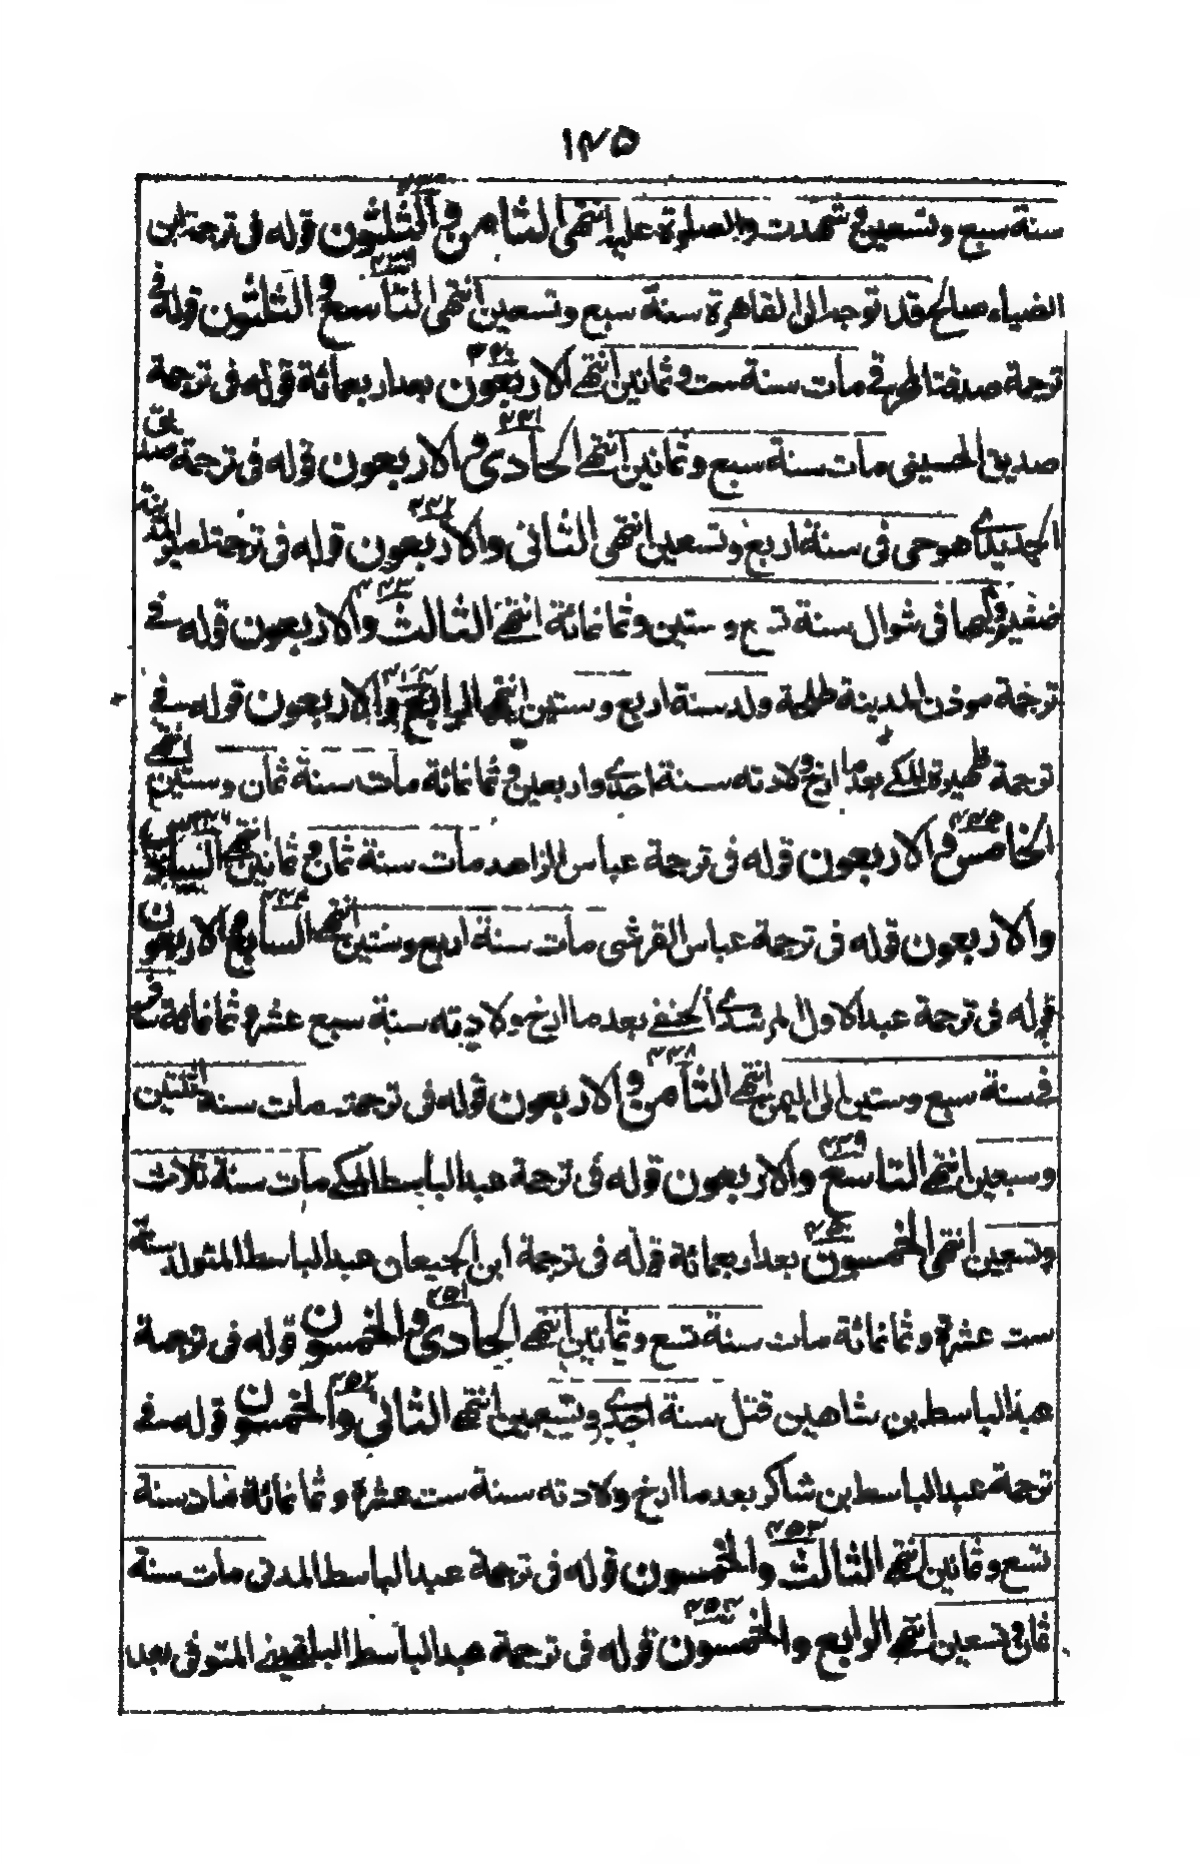 ١٤٥
سنة سبع وتسعين وشهدت والصلوة عليه انتهى الثامن والثلثون قوله فى ترجمة ابن
الضياء صالح قد توجه الى القاهرة سنة سبع وتسعين انتهى التاسع والثلثون قوله فى
ترجمة صدقة مات سنة ست وثمانين انتهى الاربعون بعد اربعمائة قوله فى ترجمة
صديق الحسينى مات سنة سبع وثمانين انتهى الحادى والاربعون قوله فى ترجمة صديق
هو حى فى سنة اربع وتسعين انتهى الثانى والاربعون قوله فى ترجمة
فى شوال سنة وستين وثمانمائة انتهى الثالث والاربعون قوله فى
ترجمة موذن المدينة ولد سنة اربع وستين انتهى الرابع والاربعون قوله فى
ترجمة ظهيرة المكى بعد ما ارخ ولادته سنة احدى واربعين وثمانمائة مات سنة ثمان وستين انتهى
الخامس والاربعون قوله فى ترجمة عباس مات سنة ثمان وثمانين انتهى السادس
والاربعون قوله فى ترجمة عباس القرشى مات سنة اربع وستين انتهى السابع والاربعون
قوله فى ترجمة عبد الاول المرشدى الحنفى بعد ما ارخ ولادته سنة سبع عشرة وثمانمائة
فى سنة سبع وستين الى اليمن انتهى الثامن والاربعون قوله فى ترجمته مات سنة اثنتين
وسبعين انتهى التاسع والاربعون قوله فى ترجمة عبد الباسط المكى مات سنة ثلاث
وتسعين انتهى الخمسون بعد اربعمائة قوله فى ترجمة ابن الجيعان عبد الباسط المتولد سنة
ست عشرة وثمانمائة مات سنة تسع وثمانين انتهى الحادى والخمسون قوله فى ترجمة
عبد الباسط بن شاهين قتل سنة احدى وتسعين انتهى الثانى والخمسون قوله فى
ترجمة عبد الباسط بن شاكر بعد ما ارخ ولادته سنة ست عشرة وثمانمائة مات سنة
تسع وثمانين انتهى الثالث والخمسون قوله فى ترجمة عبد الباسط المدنى مات سنة
ثمان وتسعين انتهى الرابع والخمسون قوله فى ترجمة عبد الباسط البلقينى المتوفى بعد